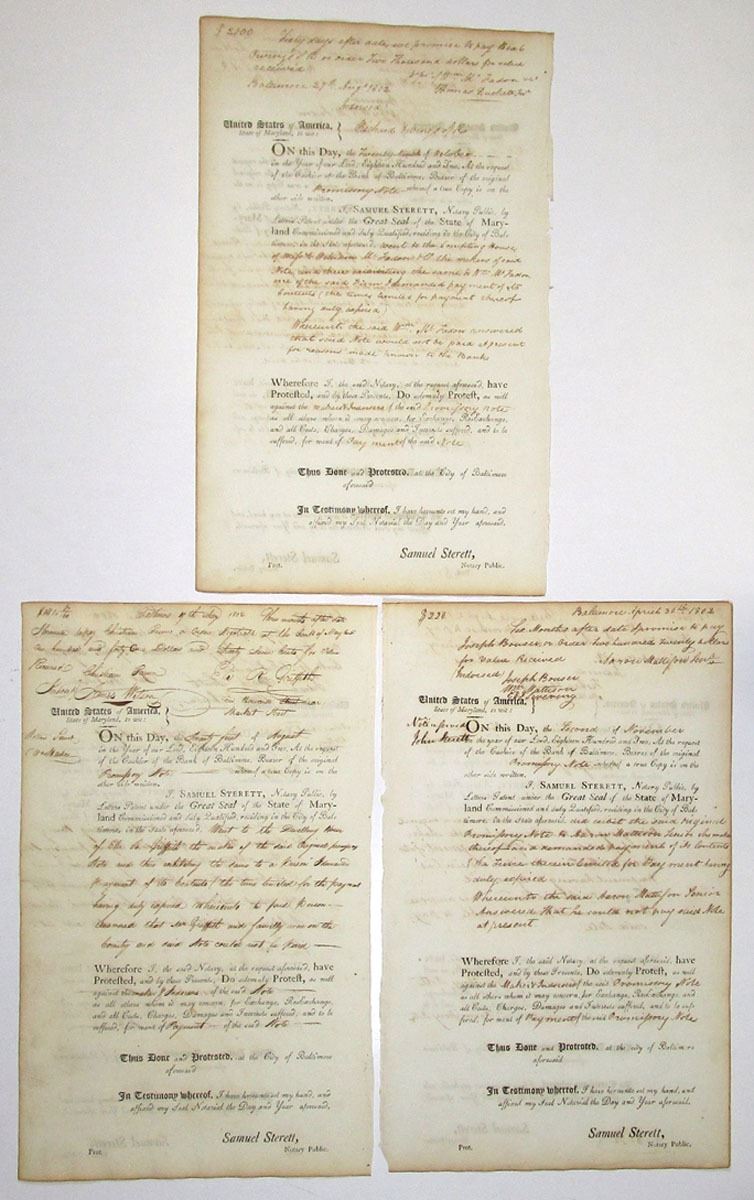 $ 2000 Sixty days after date, we promise to pay
or order Two Thousand dollars for value
received
Baltimore 27th Augt 1802
United States of America,
State of Maryland, to wit:
ON this Day, the Twenty ninth of October
in the Year of our Lord, Eighteen Hundred and Two, At the request
of the Cashier of the Bank of Baltimore, Bearer of the original
Promissory Note whereof a true Copy is on the
other side written.
I, SAMUEL STERETT, Notary Public, by
Letters Patent under the Great Seal of the State of Mary-
land Commissioned and duly Qualified, residing in the City of Bal-
timore, in the State aforesaid, went to the Compting House
of William McFadon & Co the makers of said
Note and there exhibiting the same to Wm McFadon
one of the said Firm I demanded payment of its
Contents (the time limited for payment thereof
having duly expired)
Whereunto the said Wm McFadon answered
that said Note would not be paid at present
for reasons made known to the Bank
Wherefore I, the said Notary, at the request aforesaid, have
Protested, and by these Presents, Do solemnly Protest, as well
against the Makers & Indorsers of the said Promissory note
as all others whom it may concern, for Exchange, ReExchange,
and all Costs, Charges, Damages and Interests suffered, and to be
suffered, for want of Payment of the said Note
Thus Done and Protested, at the City of Baltimore
aforesaid
In Testimony whereof, I have hereunto set my hand, and
affixed my Seal Notarial the Day and Year aforesaid.
Samuel Sterett,
Prot. Notary Public.
Baltimore 1802 Three months after date
one hundred and forty one Dollars and
E. R. Griffith
Market Street
United States of America,
State of Maryland, to wit:
ON this Day, the Twenty first of August
in the Year of our Lord, Eighteen Hundred and Two, At the request
of the Cashier of the Bank of Baltimore, Bearer of the original
Promissory Note whereof a true Copy is on the
other side written.
I, SAMUEL STERETT, Notary Public, by
Letters Patent under the Great Seal of the State of Mary-
land Commissioned and duly Qualified, residing in the City of Bal-
timore, in the State aforesaid, Went to the Dwelling House
of Griffith the maker of the said Original promissory
Note and there exhibiting the same to a Person Demand
Payment of its Contents (the time limited for the payment
having duly expired) Whereunto the said Person
answered that Mr Griffith and family was in the
Country and said Note could not be Paid
Wherefore I, the said Notary, at the request aforesaid, have
Protested, and by these Presents, Do solemnly Protest, as well
against the maker & Indorsers of the said Note
as all others whom it may concern, for Exchange, ReExchange,
and all Costs, Charges, Damages and Interests suffered, and to be
suffered, for want of Payment of the said Note
Thus Done and Protested, at the City of Baltimore
aforesaid
In Testimony whereof, I have hereunto set my hand, and
affixed my Seal Notarial the Day and Year aforesaid.
Samuel Sterett,
Prot. Notary Public.
$ 220 Baltimore April 30th 1802
Six Months after date I promise to pay
Joseph Bouser or Order two hundred twenty dollars
for Value Received Aaron Mattison Senr
Indorsed Joseph Bouser
Wm Mattison
United States of America,
State of Maryland, to wit:
John Sterett
ON this Day, the Second of November
in the year of our Lord, Eighteen Hundred and Two, At the request
of the Cashier of the Bank of Baltimore, Bearer of the original
Promissory Note whereof a true Copy is on the
other side written.
I, SAMUEL STERETT, Notary Public, by
Letters Patent under the Great Seal of the State of Mary-
land Commissioned and duly Qualified, residing in the City of Bal-
timore, in the State aforesaid, did exhibit the said original
Promissory Note to Aaron Mattison Senior the maker
thereof and demanded payment of its Contents
the time therein limited for Payment having
duly expired
Whereunto the said Aaron Mattison Senior
Answered that he could not pay said Note
at present
Wherefore I, the said Notary, at the request aforesaid, have
Protested, and by these Presents, Do solemnly Protest, as well
against the Maker & Indorsers of the said Promissory Note
as all others whom it may concern, for Exchange, ReExchange, and
all Costs, Charges, Damages and Interests suffered, and to be suf-
fered, for want of Payment of the said Promissory Note
Thus Done and Protested, at the City of Baltimore
aforesaid
In Testimony whereof, I have hereunto set my hand, and
affixed my Seal Notarial the Day and Year aforesaid.
Samuel Sterett,
Prot. Notary Public.